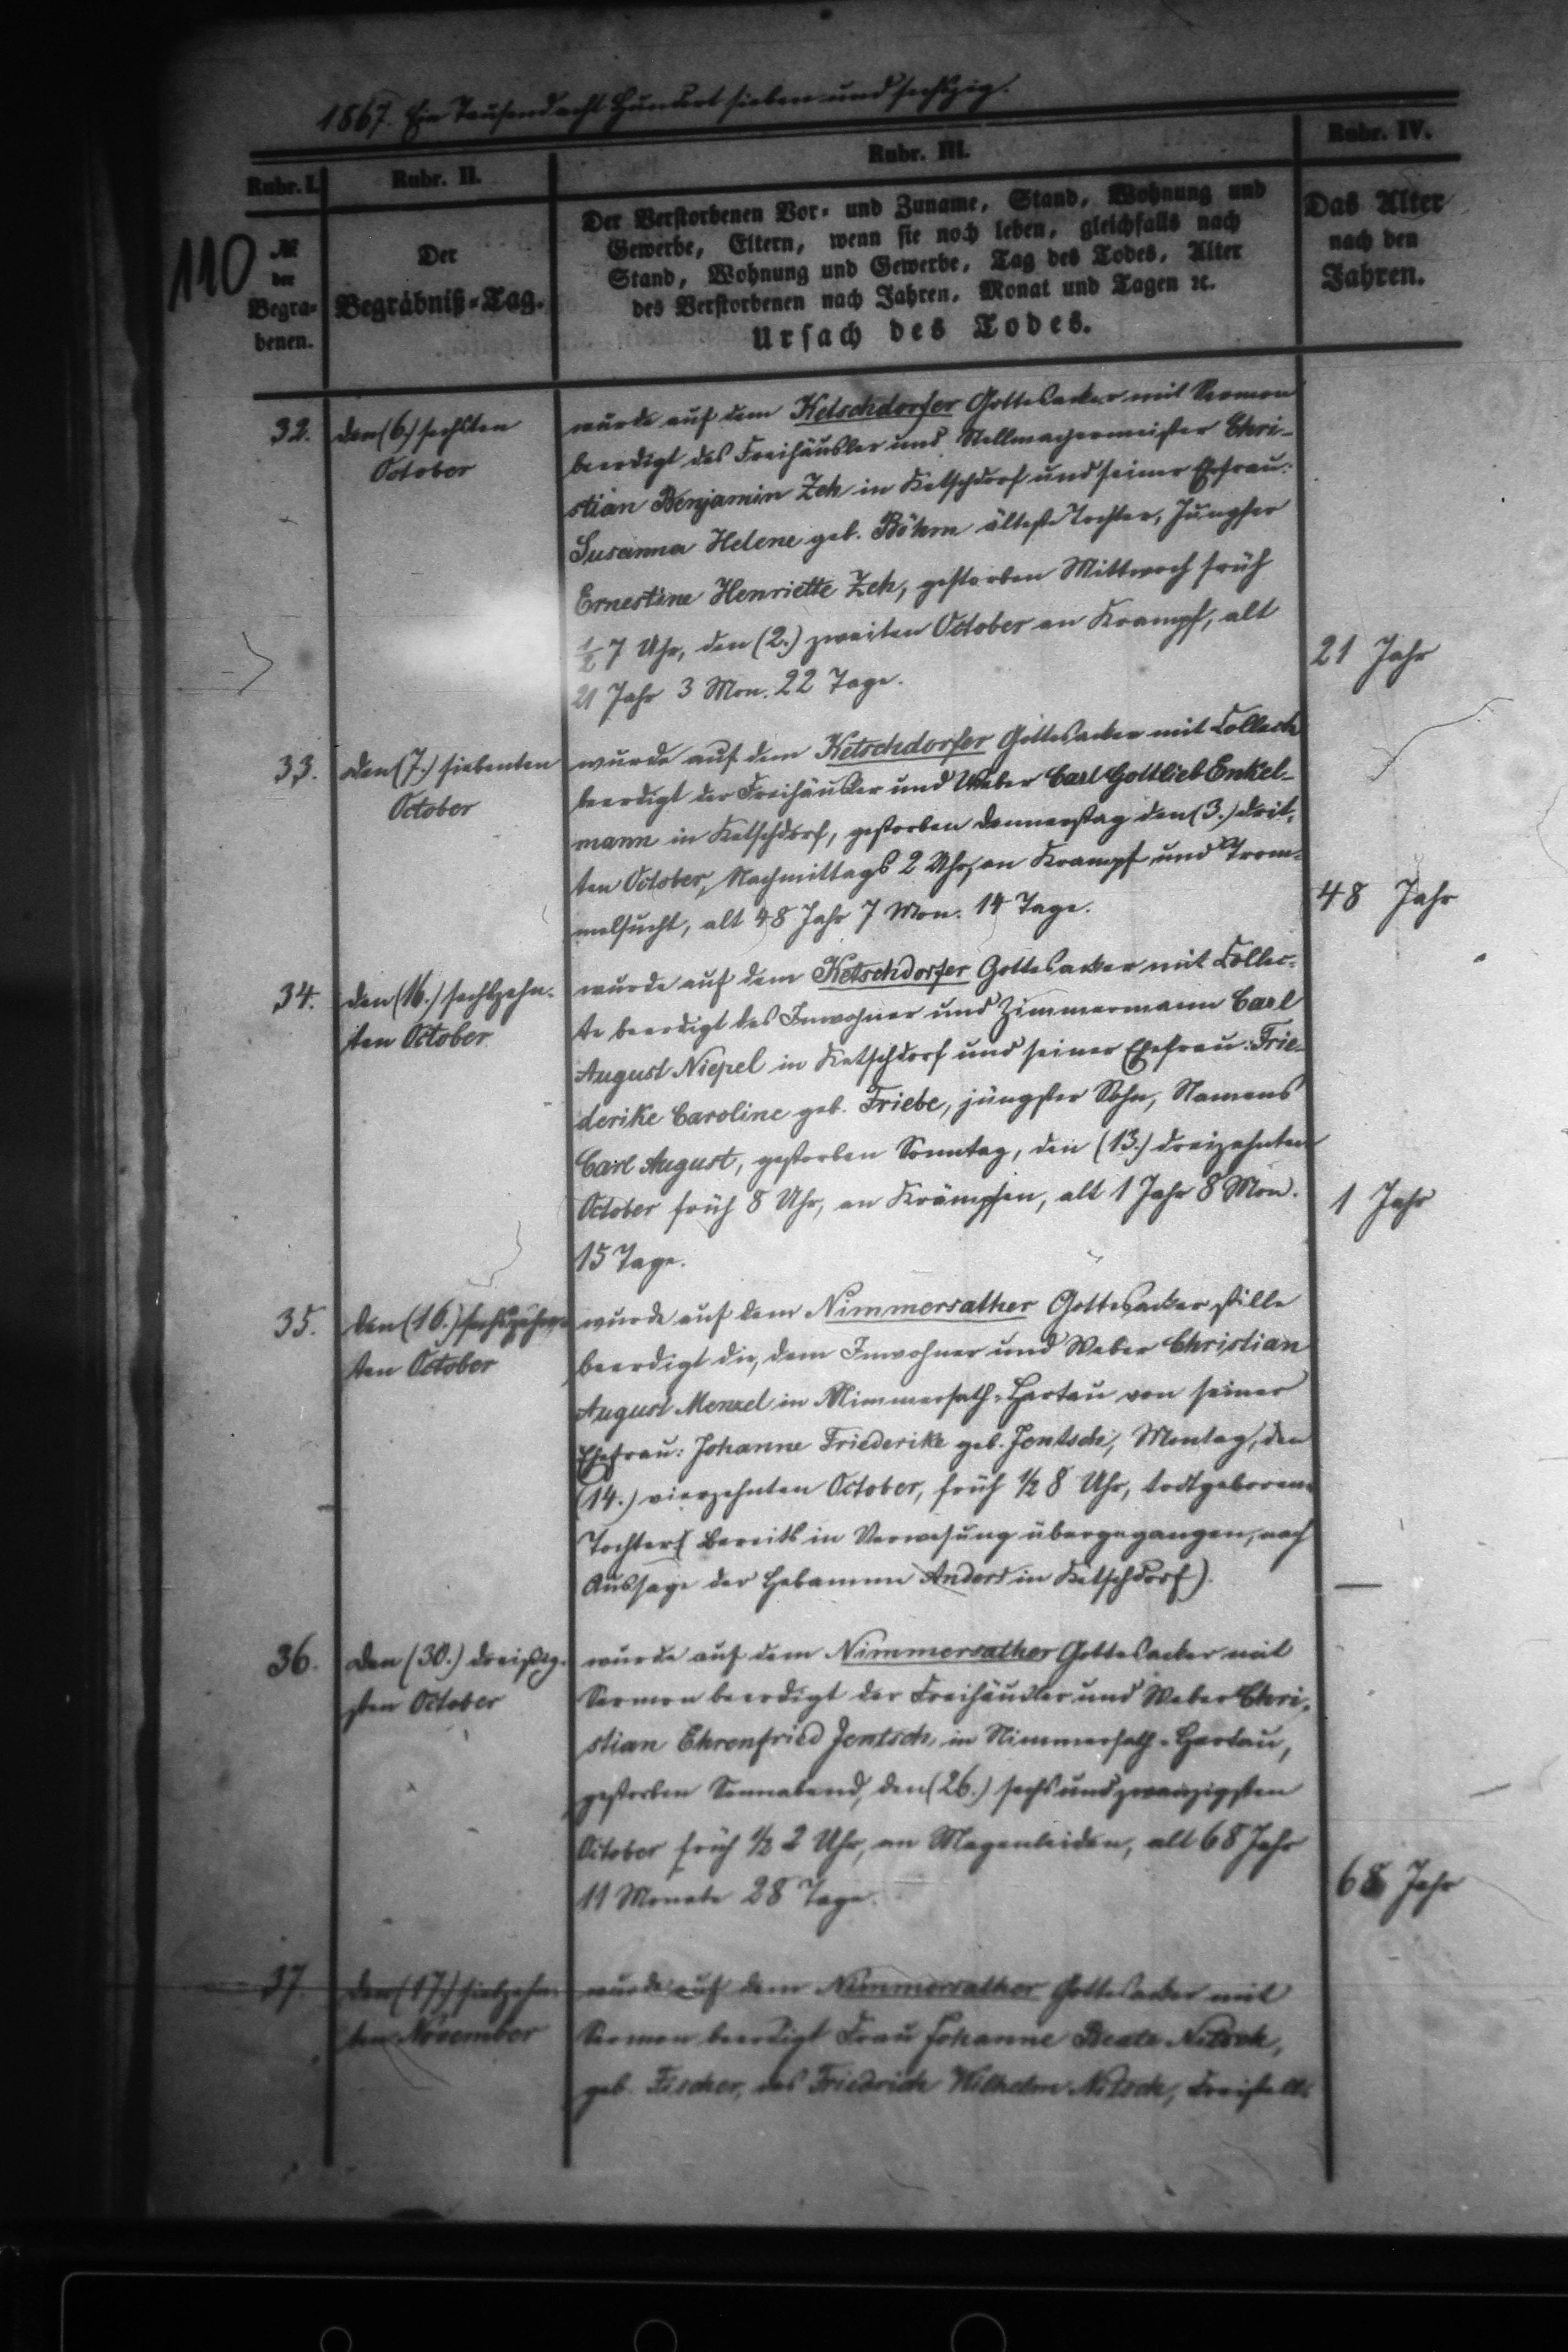 1867. Ein Tausend acht Hundert sieben und sechszig.
Rubr. I.
Rubr. II.
Rubr. III.
Rubr. IV.
110
№
der
Begra-
benen.
Der
Begräbniß-Tag.
Der Verstorbenen Vor- und Zuname, Stand, Wohnung und
Gewerbe, Eltern, wenn sie noch leben, gleichfalls nach
Stand, Wohnung und Gewerbe, Tag des Todes, Alter
des Verstorbenen nach Jahren, Monat und Tagen ꝛc.
Ursach des Todes.
Das Alter
nach den
Jahren.
32.
den (6.) sechsten
October
wurde auf dem Ketschdorfer Gottesacker mit Sermon
beerdigt des Freihäusler und Stellmachermeister Chri-
stian Benjamin Zeh in Ketschdorf und seiner Ehefrau:
Susanna Helene geb. Böhm älteste Tochter, Jungfer
Ernestine Henriette Zeh, gestorben Mittwoch früh
½ 7 Uhr, den (2.) zweiten October an Krampf, alt
21 Jahr 3 Mon. 22 Tage.
21 Jahr
33.
den (7.) siebenten
October
wurde auf dem Ketschdorfer Gottesacker mit Collecte
beerdigt der Freihäusler und Weber Carl Gottlieb Enkel-
mann in Ketschdorf, gestorben Donnerstag den (3.) drit-
ten October, Nachmittags 2 Uhr, an Krampf und Trom-
melsucht, alt 48 Jahr 7 Mon. 14 Tage.
48 Jahr
34.
den (16.) sechszehn-
ten October
wurde auf dem Ketschdorfer Gottesacker mit Collec-
te beerdigt des Inwohner und Zimmermann Carl
August Niepel in Ketschdorf und seiner Ehefrau: Frie-
derike Caroline geb. Friebe, jüngster Sohn, Namens
Carl August, gestorben Sonntag, den (13.) dreizehnten
October früh 8 Uhr, an Krämpfen, alt 1 Jahr 8 Mon.
15 Tage.
1 Jahr
35.
den (16.) sechszehn-
ten October
wurde auf dem Nimmersather Gottesacker stille
beerdigt die, dem Inwohner und Weber Christian
August Menzel in Nimmersath-Hartau von seiner
Ehefrau: Johanne Friederike geb. Jentsch, Montag, den
(14.) vierzehnten October, früh ½ 8 Uhr, todtgeborene
Tochter (bereits in Verwesung übergegangen, nach
Aussage der Hebamme Anders in Ketschdorf).
—
36.
den (30.) dreißig-
sten October
wurde auf dem Nimmersather Gottesacker mit
Sermon beerdigt der Freihäusler und Weber Chri-
stian Ehrenfried Jentsch, in Nimmersath-Hartau,
gestorben Sonnabend, den (26.) sechs und zwanzigsten
October früh ½ 2 Uhr, an Magenleiden, alt 68 Jahr
11 Monate 28 Tage.
68 Jahr
37.
den (17.) siebzehn-
ten November
wurde auf dem Nimmersather Gottesacker mit
Sermon beerdigt Frau Johanne Beate Nitsch,
geb. Fischer, des Friedrich Wilhelm Nitsch,